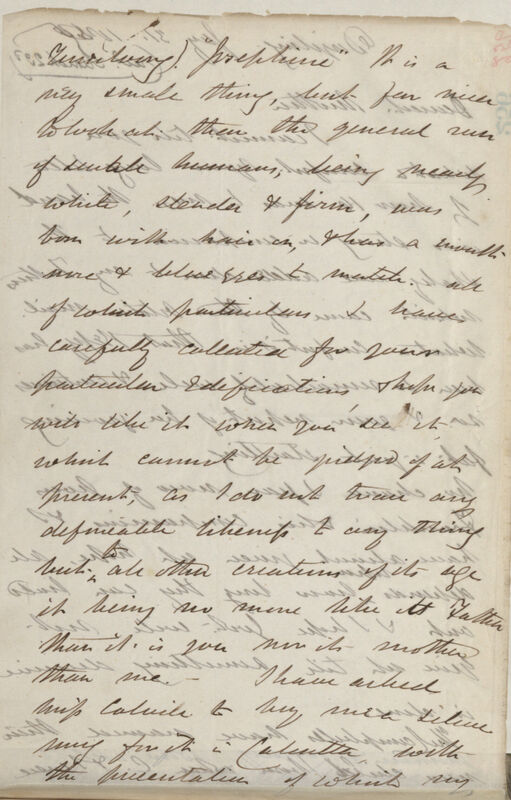 "Josephine" It is a
very small thing, but far nicer
to look at than the general run
of humans, being nearly
white, slender & firm, was
born with hair on, & has a mouth
nose & blue eyes to match. all
of which particulars I have
carefully collected for your
particular edification, & hope you
will like it when you see it,
which cannot be judged of at
present, as I do not trace any
defineable likeness to any thing
but to all other creations of its age
it being no more like its Father
than it is you nor its mother
than me. — I have asked
Miss Colvile to buy me a silver
mug for it in Calcutta, with
the presentation of which my